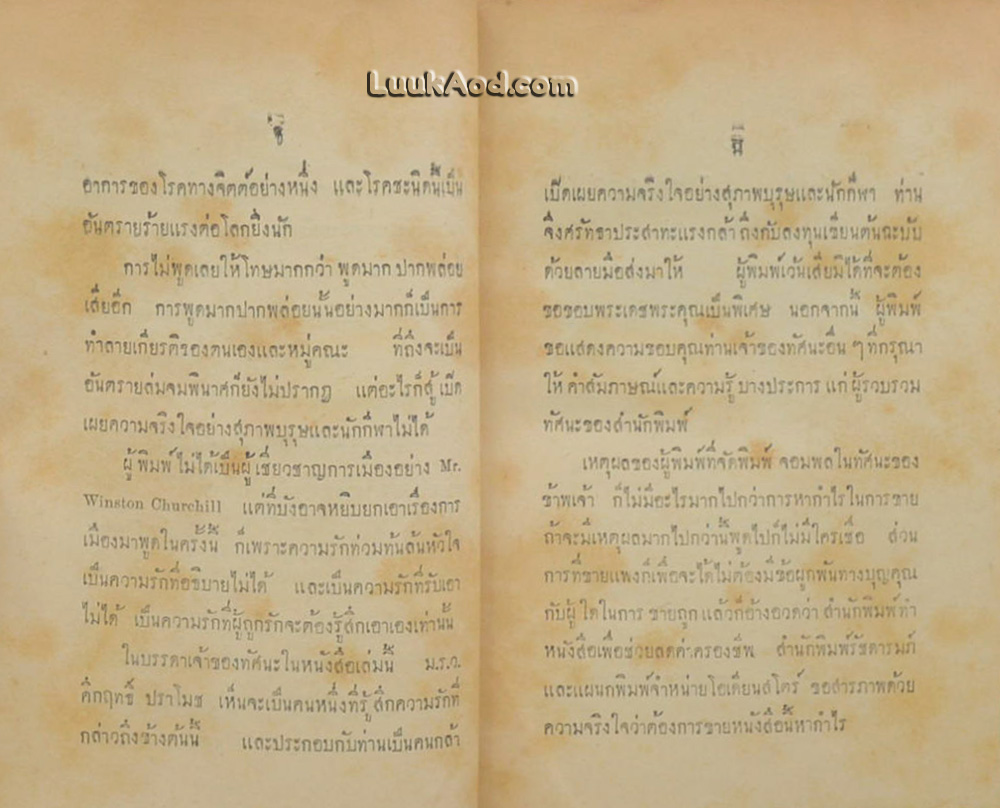 LuukAod.com
อาการของโรคทางจิตต์อย่างหนึ่ง และโรคชะนิดนี้เป็น
อันตรายร้ายแรงต่อโลกยิ่งนัก
การไม่พูดเลยให้โทษมากกว่า พูดมาก ปากพล่อย
เสียอีก การพูดมากปากพล่อยนั้นอย่างมากก็เป็นการ
ทำลายเกียรติของตนเองและหมู่คณะ ที่ถึงจะเป็น
อันตรายล่มจมพินาศก็ยังไม่ปรากฏ แต่อะไรก็สู้ เปิด
เผยความจริงใจอย่างสุภาพบุรุษและนักกีฬาไม่ได้
ผู้พิมพ์ไม่ได้เป็นผู้เชี่ยวชาญการเมืองอย่าง Mr.
Winston Churchill แต่ที่บังอาจหยิบยกเอาเรื่องการ
เมืองมาพูดในครั้งนี้ ก็เพราะความรักท่วมท้นล้นหัวใจ
เป็นความรักที่อธิบายไม่ได้ และเป็นความรักที่รับเอา
ไม่ได้ เป็นความรักที่ผู้ถูกรักจะต้องรู้สึกเอาเองเท่านั้น
ในบรรดาเจ้าของทัศนะในหนังสือเล่มนี้ ม.ร.ว.
คึกฤทธิ์ ปราโมช เห็นจะเป็นคนหนึ่งที่รู้สึกความรักที่
กล่าวถึงข้างต้นนี้ และประกอบกับท่านเป็นคนกล้า
เปิดเผยความจริงใจอย่างสุภาพบุรุษและนักกีฬา ท่าน
จึงศรัทธาประสาทะแรงกล้า ถึงกับลงทุนเขียนต้นฉะบับ
ด้วยลายมือส่งมาให้ ผู้พิมพ์เว้นเสียมิได้ที่จะต้อง
ขอขอบพระเดชพระคุณเป็นพิเศษ นอกจากนี้ ผู้พิมพ์
ขอแสดงความขอบคุณท่านเจ้าของทัศนะอื่น ๆ ที่กรุณา
ให้ คำสัมภาษณ์และความรู้ บางประการ แก่ ผู้รวบรวม
ทัศนะของสำนักพิมพ์
เหตุผลของผู้พิมพ์ที่จัดพิมพ์ จอมพลในทัศนะของ
ข้าพเจ้า ก็ไม่มีอะไรมากไปกว่าการหากำไรในการขาย
ถ้าจะมีเหตุผลมากไปกว่านี้พูดไปก็ไม่มีใครเชื่อ ส่วน
การที่ขายแพงก็เพื่อจะได้ไม่ต้องมีข้อผูกพันทางบุญคุณ
กับผู้ใดในการ ขายถูก แล้วก็อ้างอวดว่า สำนักพิมพ์ทำ
หนังสือเพื่อช่วยลดค่าครองชีพ สำนักพิมพ์รัชดารมภ์
และแผนกพิมพ์จำหน่ายโอเดียนสโตร์ ขอสารภาพด้วย
ความจริงใจว่าต้องการขายหนังสือนี้หากำไร